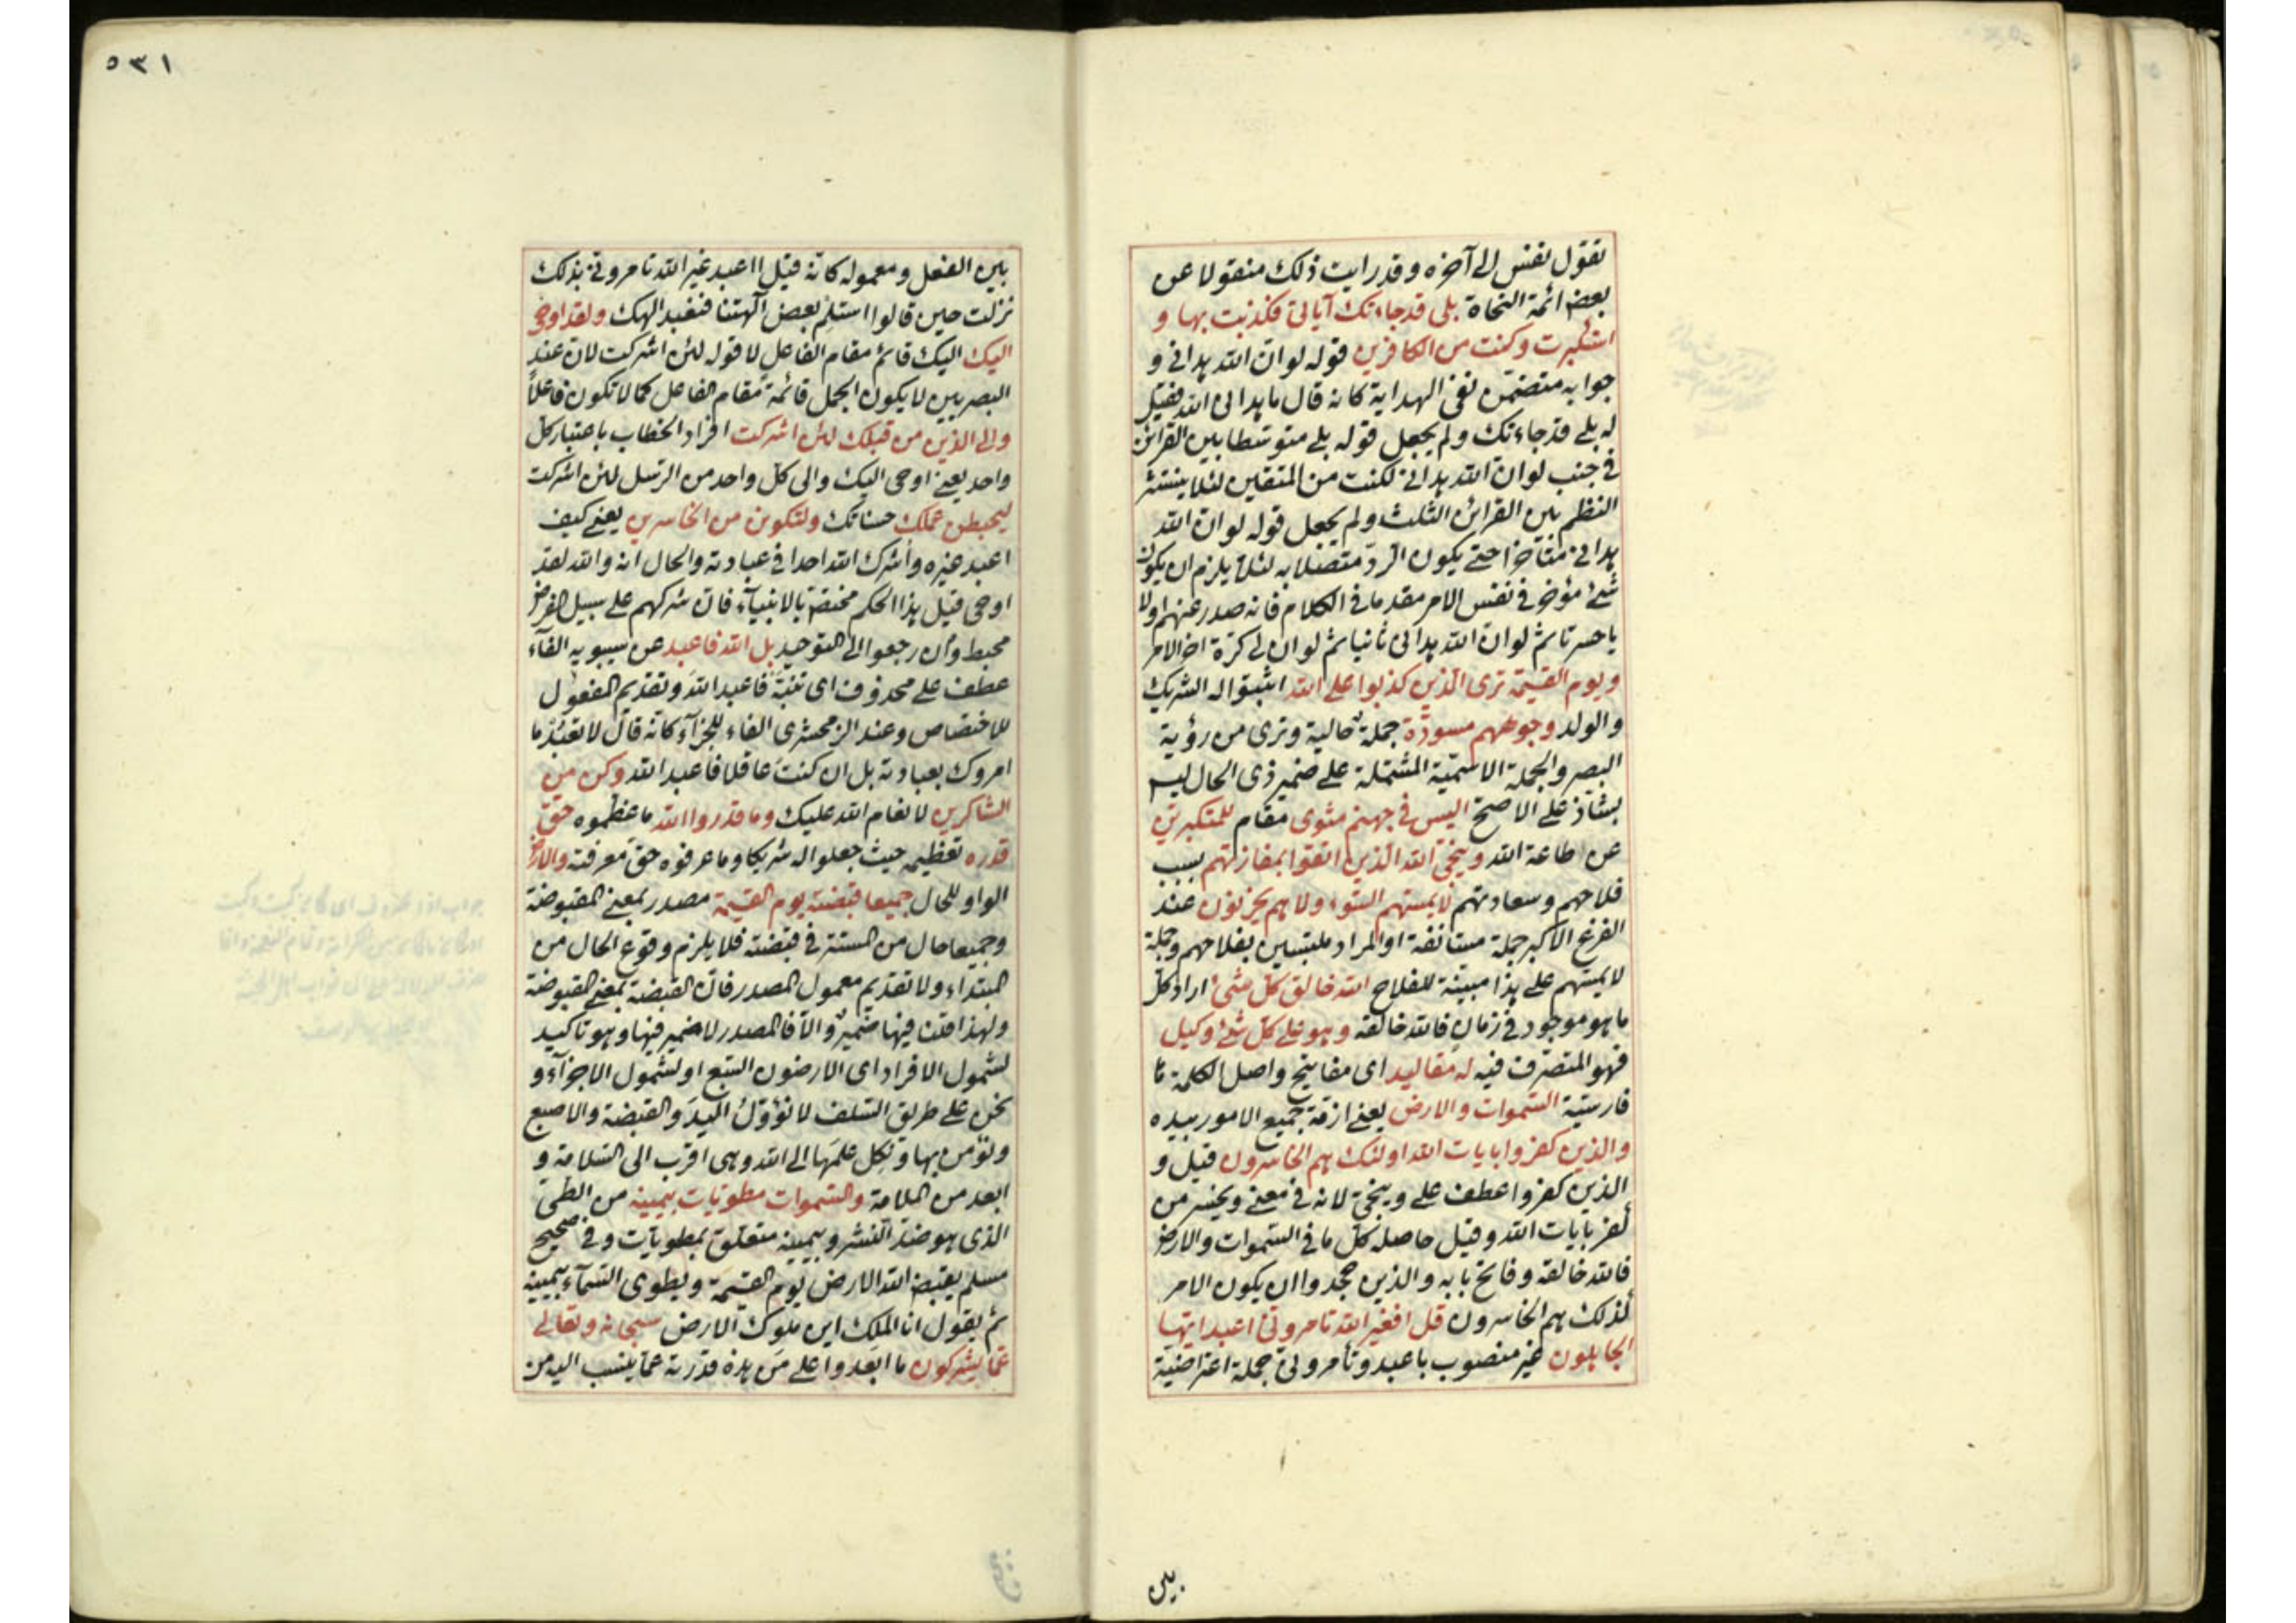 تقول نفس الى آخره وقد رايت ذلك منقولا عن
بعض ائمة النحاة بلى قد جاءتك آياتى فكذبت بها و
استكبرت وكنت من الكافرين قوله لو ان الله هدانى و
جوابه متضمن نفى الهداية كانه قال ما هدانى الله فقيل
له بلى قد جاءتك ولم يجعل قوله بلى متوسطا بين القرائن
فى جنب لو ان الله هدانى لكنت من المتقين لئلا ينتشر
النظم بين القرائن الثلث ولم يجعل قوله لو ان الله
هدانى متأخرا حتى يكون الرد متصلا به لئلا يلزم ان يكون
شئ مؤخر فى نفس الامر مقدما فى الكلام فانه صدر عنهم اولا
يا حسرتا ثم لو ان الله هدانى ثانيا ثم لو ان لى كرة اخر الامر
ويوم القيمة ترى الذين كذبوا على الله اثبتوا له الشريك
والولد وجوههم مسودّة جملة حالية وترى من رؤية
البصر والجملة الاسمية المشتملة على ضمير ذى الحال ليس
بشاذ على الاصح اليس فى جهنم مثوى مقام للمتكبرين
عن اطاعة الله وينجى الله الذين اتقوا بمفازتهم بسبب
فلاحهم وسعادتهم لا يمسهم السوء ولا هم يحزنون عند
الفزع الاكبر جملة مستانفة او المراد ملتبسين بفلاحهم وجملة
لا يمسهم على هذا مبينة للفلاح الله خالق كل شئ اراد كل
ما هو موجود فى زمان فالله خالقه وهو على كل شئ وكيل
فهو المتصرف فيه له مقاليد اى مفاتيح واصل الكلمة
فارسية السموات والارض يعنى ازمة جميع الامور بيده
والذين كفروا بايات الله اولئك هم الخاسرون قيل و
الذين كفروا عطف على وينجى لانه فى معنى ويخسر من
كفر بايات الله وقيل حاصله كل ما فى السموات والارض
فالله خالقه وفاتح بابه والذين جحدوا ان يكون الامر
كذلك هم الخاسرون قل افغير الله تامرونى اعبد ايها
الجاهلون غير منصوب باعبد وتأمرونى جملة اعتراضية
بين
٥٣١
بين الفعل ومعموله كانه قيل ااعبد غير الله تامرونى بذلك
نزلت حين قالوا استلم بعض آلهتنا فنعبد الهك ولقد اوحى
اليك اليك قائم مقام الفاعل لا قوله لئن اشركت لان عند
البصريين لا يكون الجمل قائمة مقام الفاعل كما لا تكون فاعلاً
والى الذين من قبلك لئن اشركت افراد الخطاب باعتبار كل
واحد يعنى اوحى اليك والى كل واحد من الرسل لئن اشركت
ليحبطن عملك حسناتك ولتكونن من الخاسرين يعنى كيف
اعبد غيره وأشرك الله احدا فى عبادته والحال انه والله لقد
اوحى قيل هذا الحكم مختص بالانبياء فان شركهم على سبيل الفرض
محبط وان رجعوا الى التوحيد بل الله فاعبد عن سيبويه الفاء
عطف على محذوف اى تنبه فاعبد الله وتقديم المفعول
للاختصاص وعند الزمحشرى الفاء للجزآء كانه قال لا تعبد ما
امروك بعبادته بل ان كنت عاقلا فاعبد الله وكن من
الشاكرين لانعام الله عليك وما قدروا الله ما عظموه حق
قدره تعظيمه حيث جعلوا له شريكا وما عرفوه حق معرفته والارض
الواو للحال جميعا قبضته يوم القيمة مصدر بمعنى المقبوضة
وجميعا حال من المستتر فى قبضته فلا يلزم وقوع الحال من
المبتداء ولا تقديم معمول المصدر فان القبضة بمعنى المقبوضة
ولهذا قلت فيها ضمير والا فالمصدر لا ضمير فيها وهو تاكيد
لشمول الافراد اى الارضون السبع او لشمول الاجزآء و
نحن على طريق السلف لا نؤوّل اليد والقبضة والاصبع
ونؤمن بها ونكل علمها الى الله وهى اقرب الى السلامة و
ابعد من الملامة والسموات مطويات بيمينه من الطى
الذى هو ضد النشر وبيمينه متعلق بمطويات وفى صحيح
مسلم يقبض الله الارض يوم القيمة ويطوى السمآء بيمينه
ثم يقول انا الملك اين ملوك الارض سبحانه وتعالى
عما يشركون ما ابعدوا على من هذه قدرته عما ينسب اليه من